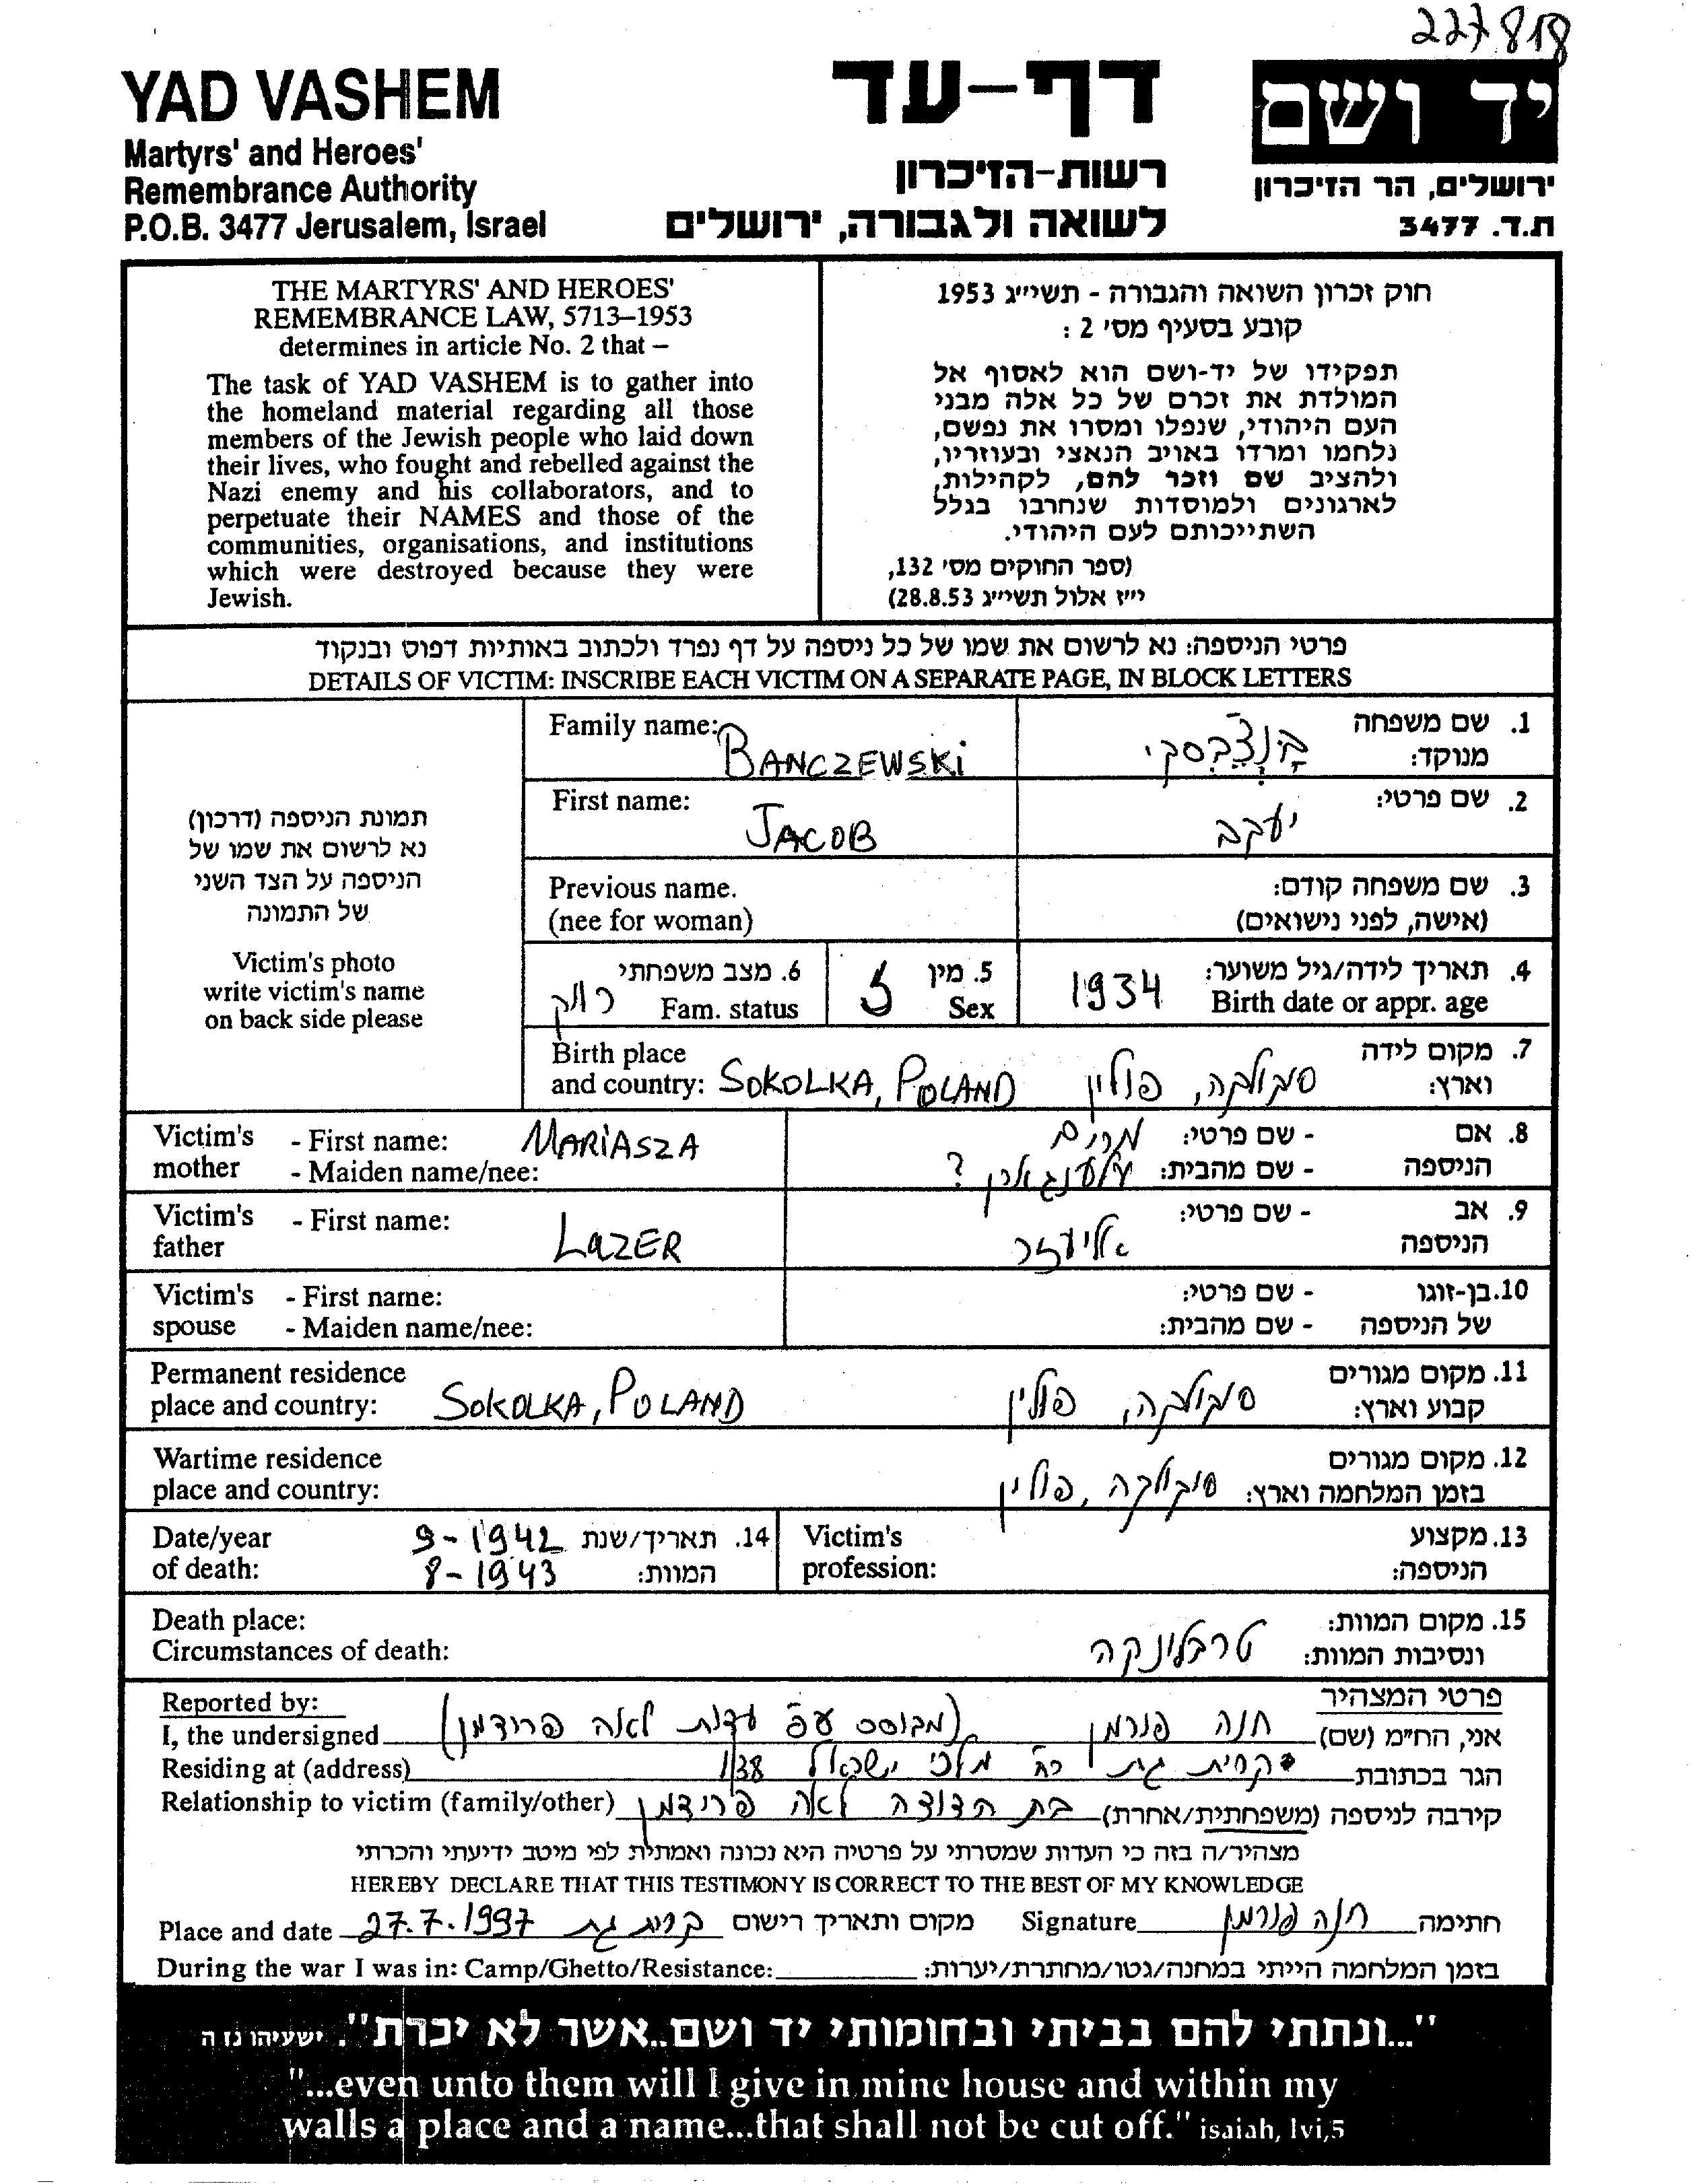 227818
YAD VASHEM
Martyrs' and Heroes'
Remembrance Authority
P.O.B. 3477 Jerusalem, Israel
דף-עד
רשות-הזיכרון
לשואה ולגבורה, ירושלים
יד ושם
ירושלים, הר הזיכרון
ת.ד. 3477
THE MARTYRS' AND HEROES'
REMEMBRANCE LAW, 5713–1953
determines in article No. 2 that –
The task of YAD VASHEM is to gather into
the homeland material regarding all those
members of the Jewish people who laid down
their lives, who fought and rebelled against the
Nazi enemy and his collaborators, and to
perpetuate their NAMES and those of the
communities, organisations, and institutions
which were destroyed because they were
Jewish.
חוק זכרון השואה והגבורה - תשי״ג 1953
קובע בסעיף מס׳ 2 :
תפקידו של יד-ושם הוא לאסוף אל
המולדת את זכרם של כל אלה מבני
העם היהודי, שנפלו ומסרו את נפשם,
נלחמו ומרדו באויב הנאצי ובעוזריו,
ולהציב שם וזכר להם, לקהילות,
לארגונים ולמוסדות שנחרבו בגלל
השתייכותם לעם היהודי.
(ספר החוקים מס׳ 132,
י״ז אלול תשי״ג 28.8.53)
פרטי הניספה: נא לרשום את שמו של כל ניספה על דף נפרד ולכתוב באותיות דפוס ובנקוד
DETAILS OF VICTIM: INSCRIBE EACH VICTIM ON A SEPARATE PAGE, IN BLOCK LETTERS
תמונת הניספה (דרכון)
נא לרשום את שמו של
הניספה על הצד השני
של התמונה
Victim's photo
write victim's name
on back side please
Family name: BANCZEWSKI
1. שם משפחה
מנוקד: בנצ'בסקי
First name: JACOB
2. שם פרטי: יעקב
Previous name.
(nee for woman)
3. שם משפחה קודם:
(אישה, לפני נישואים)
6. מצב משפחתי
Fam. status רווק
5. מין
Sex ז
4. תאריך לידה/גיל משוער:
Birth date or appr. age 1934
Birth place
and country: SOKOLKA, POLAND
7. מקום לידה
וארץ: סקולקה, פולין
Victim's mother - First name: MARIASZA
- Maiden name/nee:
8. אם הניספה - שם פרטי: מרים
- שם מהבית: ?
Victim's father - First name: LAZER
9. אב הניספה - שם פרטי: אליעזר
Victim's spouse - First name:
- Maiden name/nee:
10. בן-זוגו - שם פרטי:
של הניספה - שם מהבית:
Permanent residence
place and country: SOKOLKA, POLAND
11. מקום מגורים
קבוע וארץ: סוקולקה, פולין
Wartime residence
place and country:
12. מקום מגורים
בזמן המלחמה וארץ: סוקולקה, פולין
Date/year
of death: 9-1942
8-1943
14. תאריך/שנת
המוות:
Victim's
profession:
13. מקצוע
הניספה:
Death place:
Circumstances of death:
15. מקום המוות:
ונסיבות המוות: טרבלינקה
Reported by:
פרטי המצהיר
I, the undersigned
אני, הח״מ (שם) חנה פורמן (מבוסס עפ עדות לאה פרידמן)
Residing at (address)
הגר בכתובת קרית גת רח מלכי ישראל 1/38
Relationship to victim (family/other)
קירבה לניספה (משפחתית/אחרת) בת הדודה לאה פרידמן
מצהיר/ה בזה כי העדות שמסרתי על פרטיה היא נכונה ואמתית לפי מיטב ידיעתי והכרתי
HEREBY DECLARE THAT THIS TESTIMONY IS CORRECT TO THE BEST OF MY KNOWLEDGE
Place and date 27.7.1997 קרית גת מקום ותאריך רישום
Signature חנה פורמן חתימה
During the war I was in: Camp/Ghetto/Resistance:
בזמן המלחמה הייתי במחנה/גטו/מחתרת/יערות:
"...ונתתי להם בביתי ובחומותי יד ושם..אשר לא יכרת". ישעיהו נו ה
"...even unto them will I give in mine house and within my
walls a place and a name...that shall not be cut off." isaiah, lvi,5